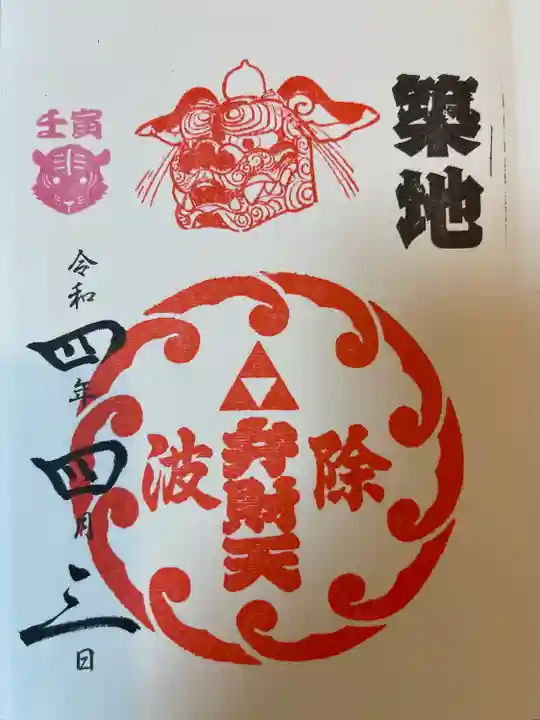 築地
除波
弁財天
壬寅
令和四年四月三日